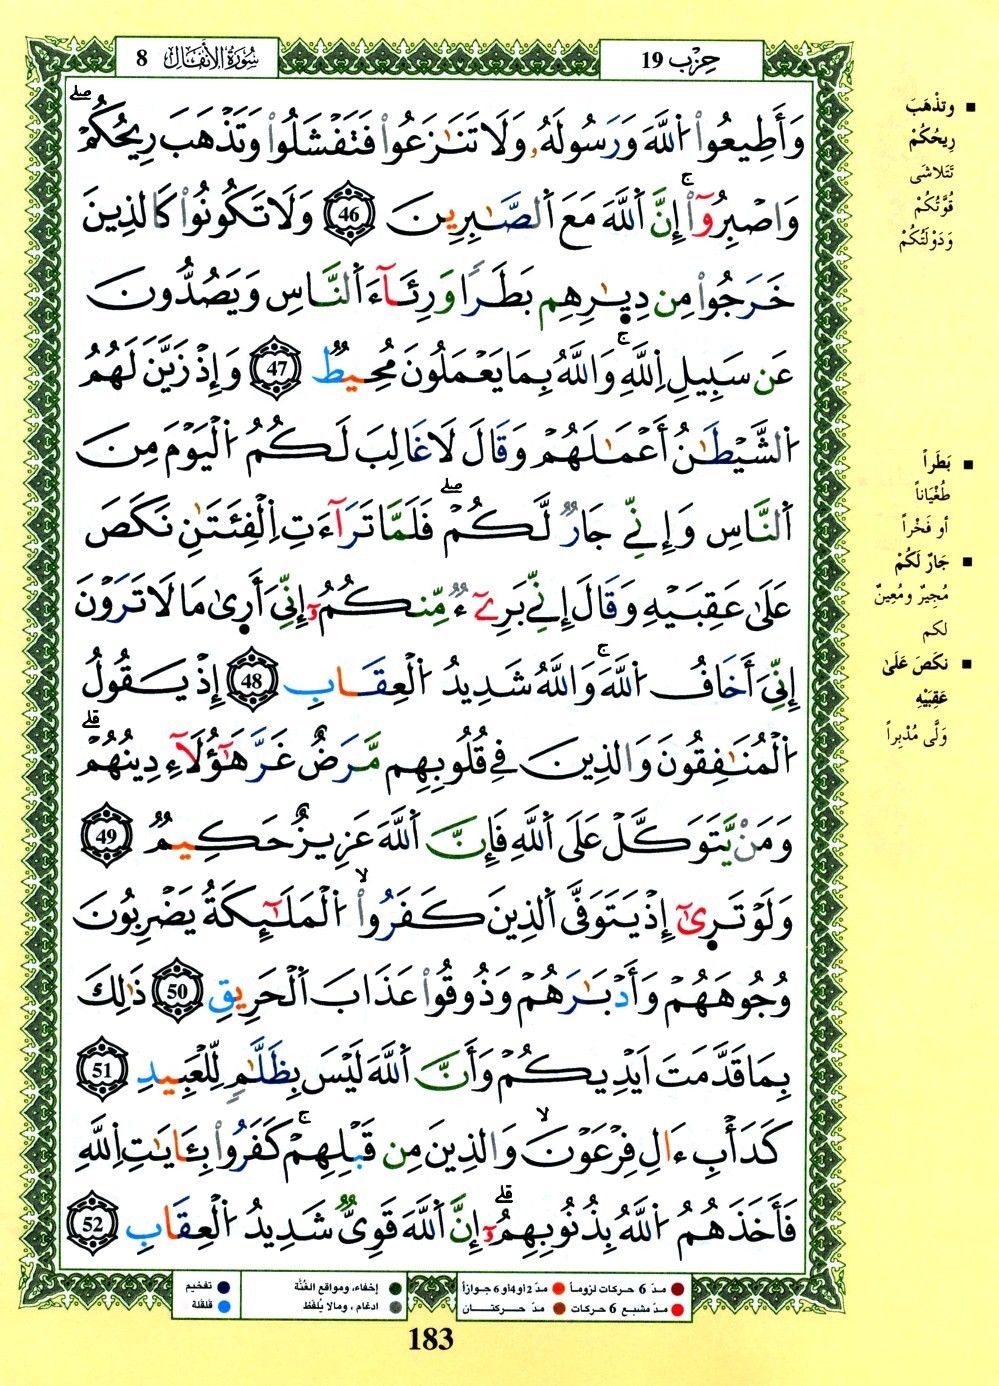 سُورَةُ الأَنفَال 8
حِزْب 19
وَأَطِيعُواْ اُللَّهَ وَرَسُولَهُۥ وَلَا تَنَٰزَعُواْ فَتَفْشَلُواْ وَتَذْهَبَ رِيحُكُمْۖ
وَاصْبِرُوٓاْۚ إِنَّ اَللَّهَ مَعَ اَلصَّٰبِرِينَ 46 وَلَا تَكُونُواْ كَالذِينَ
خَرَجُواْ مِن دِيٰ۪رِهِم بَطَرًا وَرِئَآءَ اَلنَّاسِ وَيَصُدُّونَ
عَن سَبِيلِ اِللَّهِۚ وَاللَّهُ بِمَا يَعْمَلُونَ مُحِيطٌ 47 وَإِذْ زَيَّنَ لَهُمُ
اُلشَّيْطَٰنُ أَعْمَٰلَهُمْ وَقَالَ لَا غَالِبَ لَكُمُ اُلْيَوْمَ مِنَ
اَلنَّاسِ وَإِنِّي جَارٌ لَّكُمْۖ فَلَمَّا تَرَآءَتِ اِلْفِئَتَٰنِ نَكَصَ
عَلَىٰ عَقِبَيْهِ وَقَالَ إِنِّي بَرِےٓءٌ مِّنكُمُۥٓ إِنِّيَ أَرَىٰ مَا لَا تَرَوْنَ
إِنِّيَ أَخَافُ اُللَّهَۚ وَاللَّهُ شَدِيدُ اُلْعِقَابِ 48 إِذْ يَقُولُ
اُلْمُنَٰفِقُونَ وَالذِينَ فِي قُلُوبِهِم مَّرَضٌ غَرَّ هَٰٓؤُلَآءِ دِينُهُمْۗ
وَمَنْ يَّتَوَكَّلْ عَلَى اَللَّهِ فَإِنَّ اَللَّهَ عَزِيزٌ حَكِيمٌ 49
وَلَوْ تَر۪ىٰٓ إِذْ يَتَوَفَّى اَلذِينَ كَفَرُواْۙ اُلْمَلَٰٓئِكَةُ يَضْرِبُونَ
وُجُوهَهُمْ وَأَدْبَٰرَهُمْ وَذُوقُواْ عَذَابَ اَلْحَرِيقِ 50 ذَٰلِكَ
بِمَا قَدَّمَتَ اَيْدِيكُمْ وَأَنَّ اَللَّهَ لَيْسَ بِظَلَّٰمٍ لِّلْعَبِيدِ 51
كَدَأْبِ ءَالِ فِرْعَوْنَۙ وَالذِينَ مِن قَبْلِهِمْۚ كَفَرُواْ بِـَٔايَٰتِ اِللَّهِ
فَأَخَذَهُمُ اُللَّهُ بِذُنُوبِهِمُۥٓۗ إِنَّ اَللَّهَ قَوِيٌّ شَدِيدُ اُلْعِقَابِ 52
وتذْهَبَ
رِيحُكُمْ
تَتَلاشى
قُوَّتُكُمْ
وَدَوْلَتُكُمْ
بَطَراً
طُغْيَاناً
أو فَخْراً
جَارٌ لَكُمْ
مُجِيرٌ ومُعِينٌ
لكم
نكَصَ عَلَىٰ
عَقِبَيْهِ
وَلَّى مُدْبِراً
مدّ 6 حركات لزوماً
مدّ 2 أو 4 أو 6 جوازاً
مدّ مشبع 6 حركات
مدّ حركتان
إخفاء، ومواقع الغُنَّة
ادغام، وما لا يُلفَظ
تفخيم
قلقلة
183